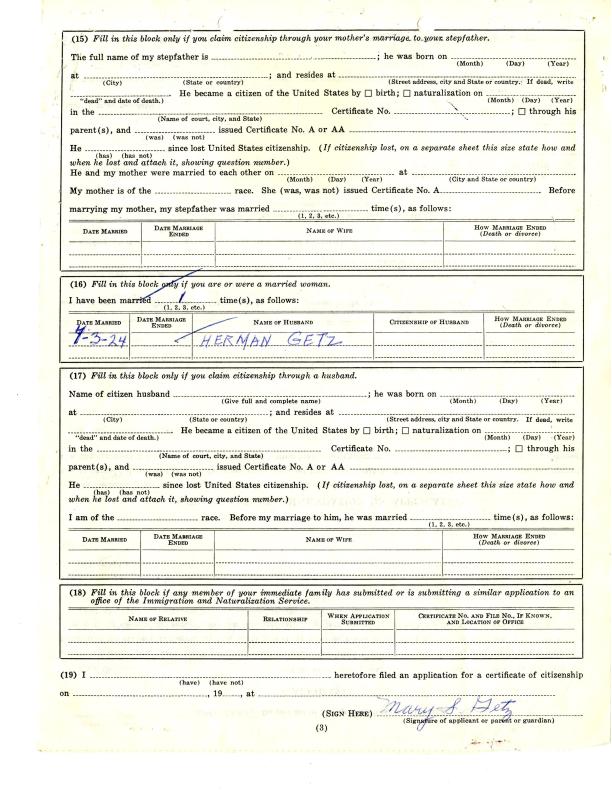 (15) Fill in this block only if you claim citizenship through your mother's marriage to your stepfather.
The full name of my stepfather is ; he was born on
(Month) (Day) (Year)
at ; and resides at
(City) (State or country) (Street address, city and State or country. If dead, write
He became a citizen of the United States by ☐ birth; ☐ naturalization on
"dead" and date of death.) (Month) (Day) (Year)
in the Certificate No. ; ☐ through his
(Name of court, city, and State)
parent(s), and issued Certificate No. A or AA
(was) (was not)
He since lost United States citizenship. (If citizenship lost, on a separate sheet this size state how and
(has) (has not)
when he lost and attach it, showing question number.)
He and my mother were married to each other on at
(Month) (Day) (Year) (City and State or country)
My mother is of the race. She (was, was not) issued Certificate No. A Before
marrying my mother, my stepfather was married time(s), as follows:
(1, 2, 3, etc.)
DATE MARRIED DATE MARRIAGE ENDED NAME OF WIFE HOW MARRIAGE ENDED (Death or divorce)
(16) Fill in this block only if you are or were a married woman.
I have been married 1 time(s), as follows:
(1, 2, 3, etc.)
DATE MARRIED DATE MARRIAGE ENDED NAME OF HUSBAND CITIZENSHIP OF HUSBAND HOW MARRIAGE ENDED (Death or divorce)
9-3-24 HERMAN GETZ
(17) Fill in this block only if you claim citizenship through a husband.
Name of citizen husband ; he was born on
(Give full and complete name) (Month) (Day) (Year)
at ; and resides at
(City) (State or country) (Street address, city and State or country. If dead, write
He became a citizen of the United States by ☐ birth; ☐ naturalization on
"dead" and date of death.) (Month) (Day) (Year)
in the Certificate No. ; ☐ through his
(Name of court, city, and State)
parent(s), and issued Certificate No. A or AA
(was) (was not)
He since lost United States citizenship. (If citizenship lost, on a separate sheet this size state how and
(has) (has not)
when he lost and attach it, showing question number.)
I am of the race. Before my marriage to him, he was married time(s), as follows:
(1, 2, 3, etc.)
DATE MARRIED DATE MARRIAGE ENDED NAME OF WIFE HOW MARRIAGE ENDED (Death or divorce)
(18) Fill in this block if any member of your immediate family has submitted or is submitting a similar application to an
office of the Immigration and Naturalization Service.
NAME OF RELATIVE RELATIONSHIP WHEN APPLICATION SUBMITTED CERTIFICATE NO. AND FILE NO., IF KNOWN, AND LOCATION OF OFFICE
(19) I heretofore filed an application for a certificate of citizenship
(have) (have not)
on , 19 , at
(SIGN HERE) Mary S. Getz
(Signature of applicant or parent or guardian)
(3)